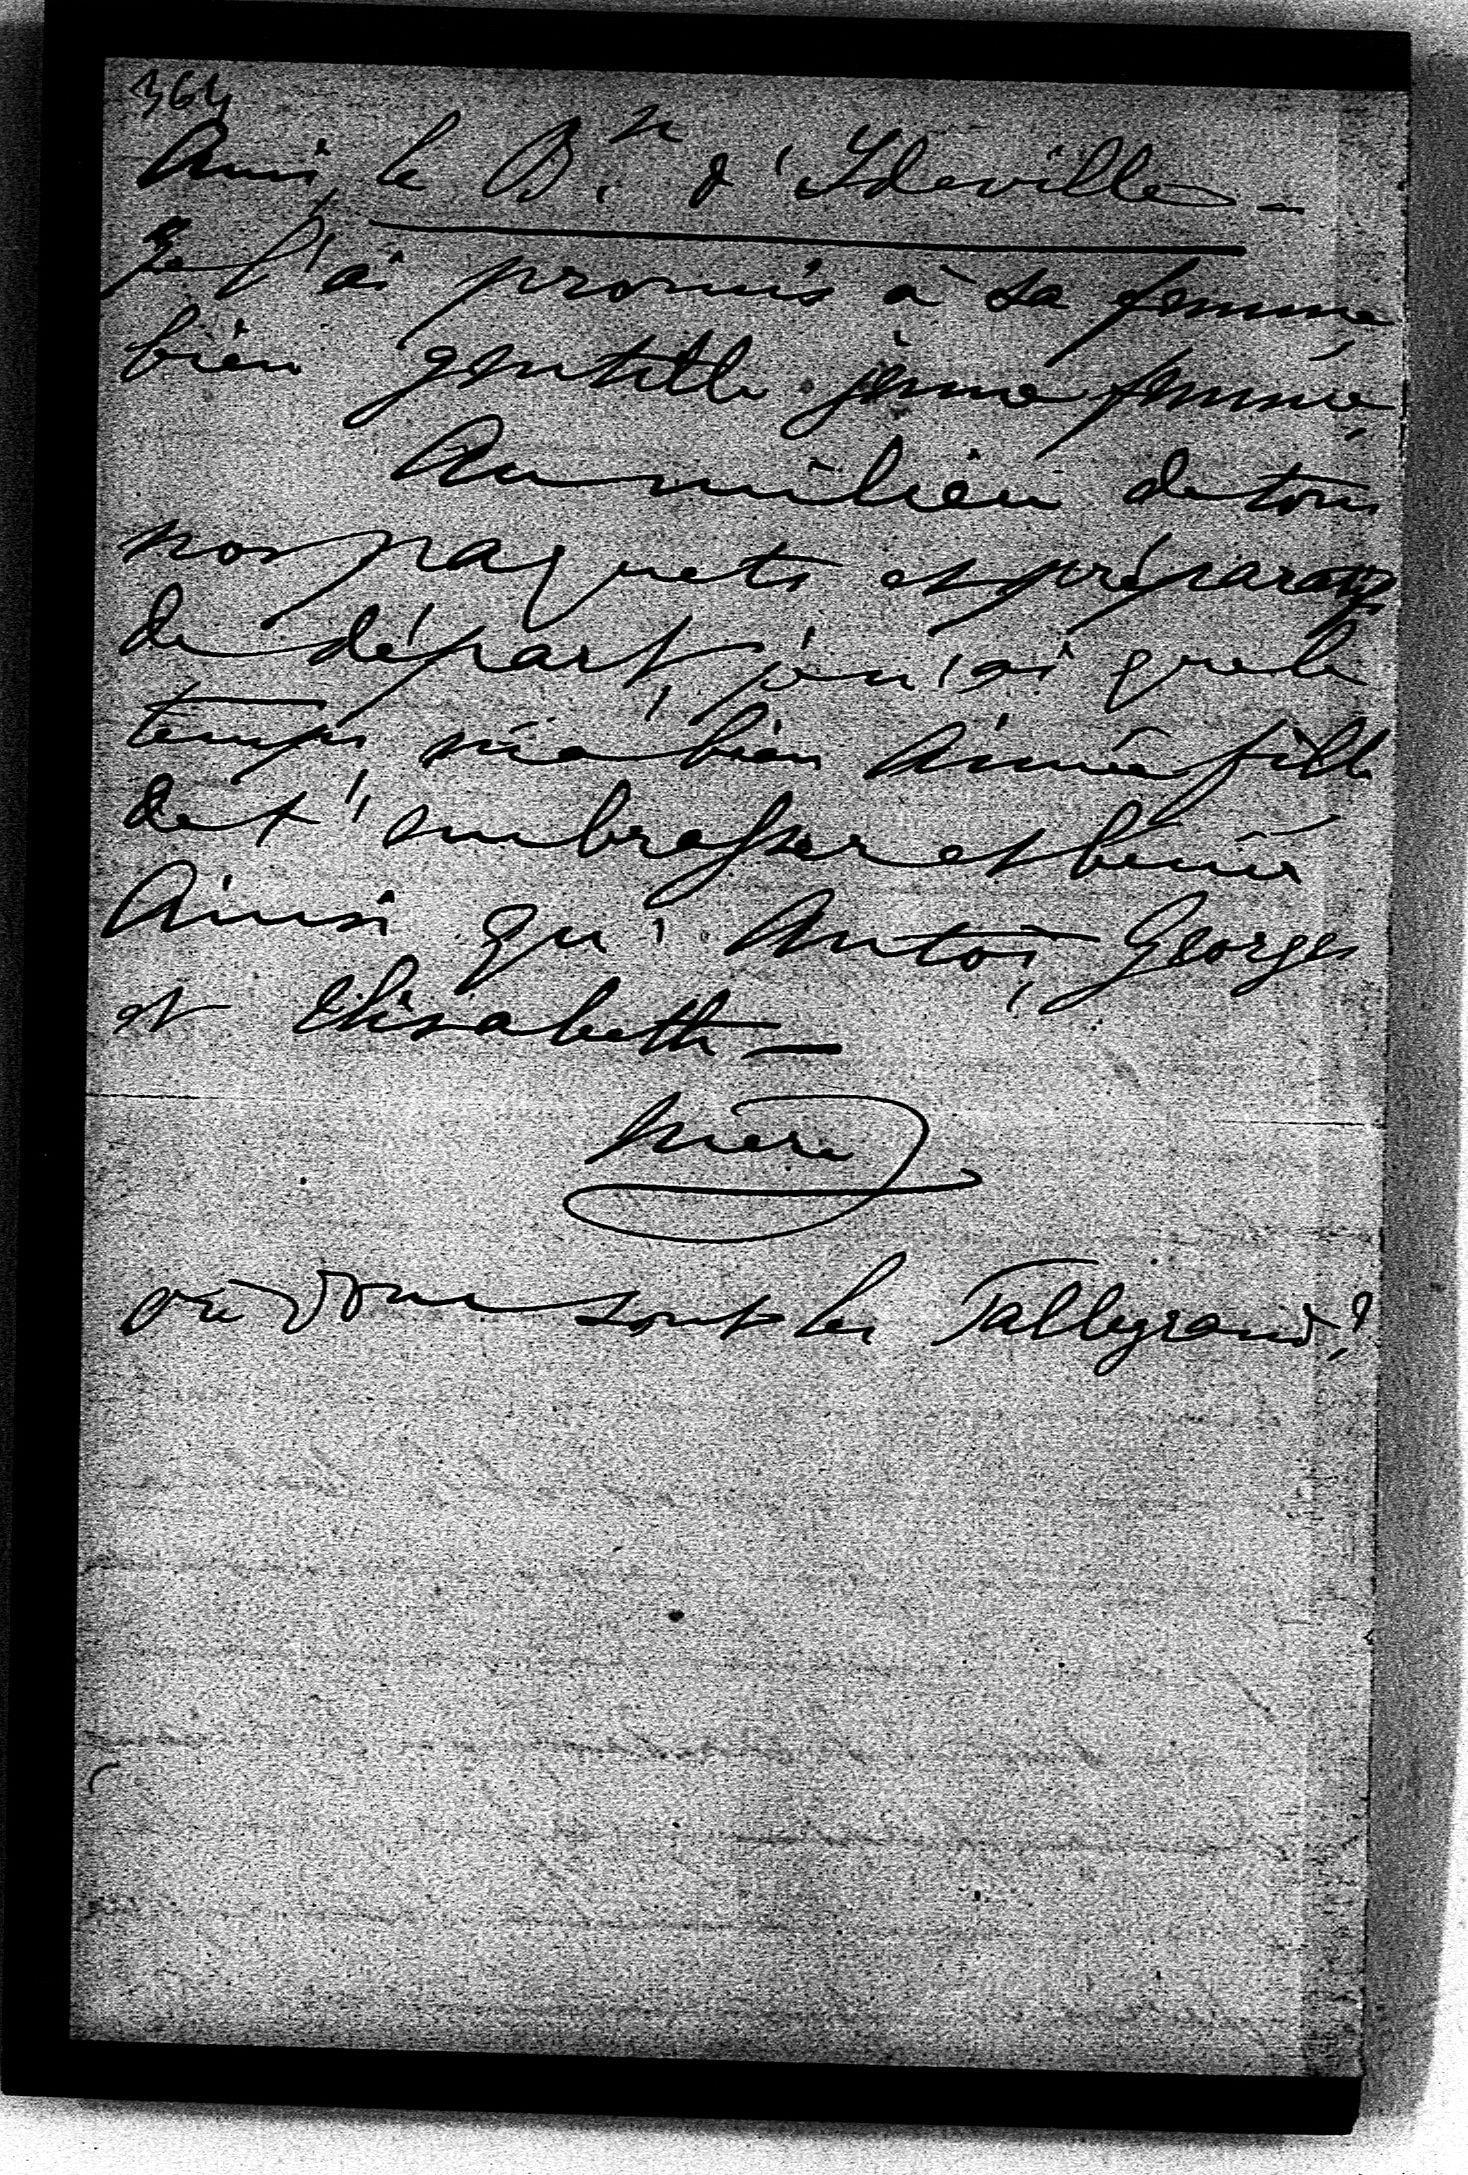 364
Ami, le B.on d'Ideville –
Je l'ai promis à sa femme,
bien gentille jeune femme,
Au milieu de tous
nos paquets et préparatifs
de départ, je n'ai que le
temps, ma bien aimée fille
de t'embrasser et bénir
Ainsi qu'Antoi, Georges
et Elisabeth —
mère
où donc sont les Talleyrand,?